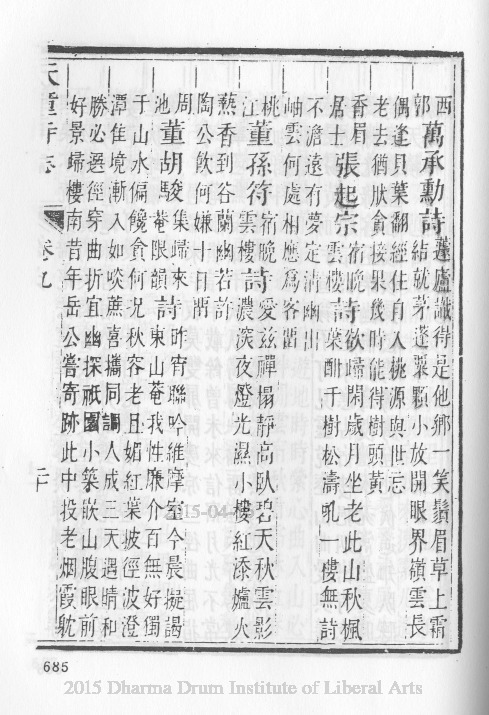 西郭萬承勳詩蘧廬識得是他鄉一笑鬚眉草上霜
結就茅蓬粟顆小放開眼界嶺雲長
偶逢貝葉翻經住自入桃源與世忘
老去猶肰貪接果幾時能得樹頭黃
香眉居士張起宗宿晚雲樓詩欲歸閑歲月坐老此山秋楓葉酣千樹松濤吼一樓無詩
不澹遠有夢定清幽出
岫雲何處相應爲客畱
桃江董孫符宿晚雲樓詩愛茲禪榻靜高臥碧天秋雲影濃淡夜燈光濕小樓紅添爐火
爇香到谷蘭幽若許
陶公飲何嫌十日畱
周池董胡駿集歸來菴眼韻詩昨宵聯吟維摩室今晨擬謁東山菴我性廉介百無好獨
于山水偏饞貪何況秋容老且媚紅葉披徑波澄
潭佳境漸入如啖蔗喜攜同調人成三天遇晴和
勝必選徑穿曲折宜幽探祇園小築嵌山腹眼前
好景歸樓南昔年岳公嘗寄跡此中投老烟霞躭
天童寺志
卷九
二十
2015-04
685
2015 Dharma Drum Institute of Liberal Arts